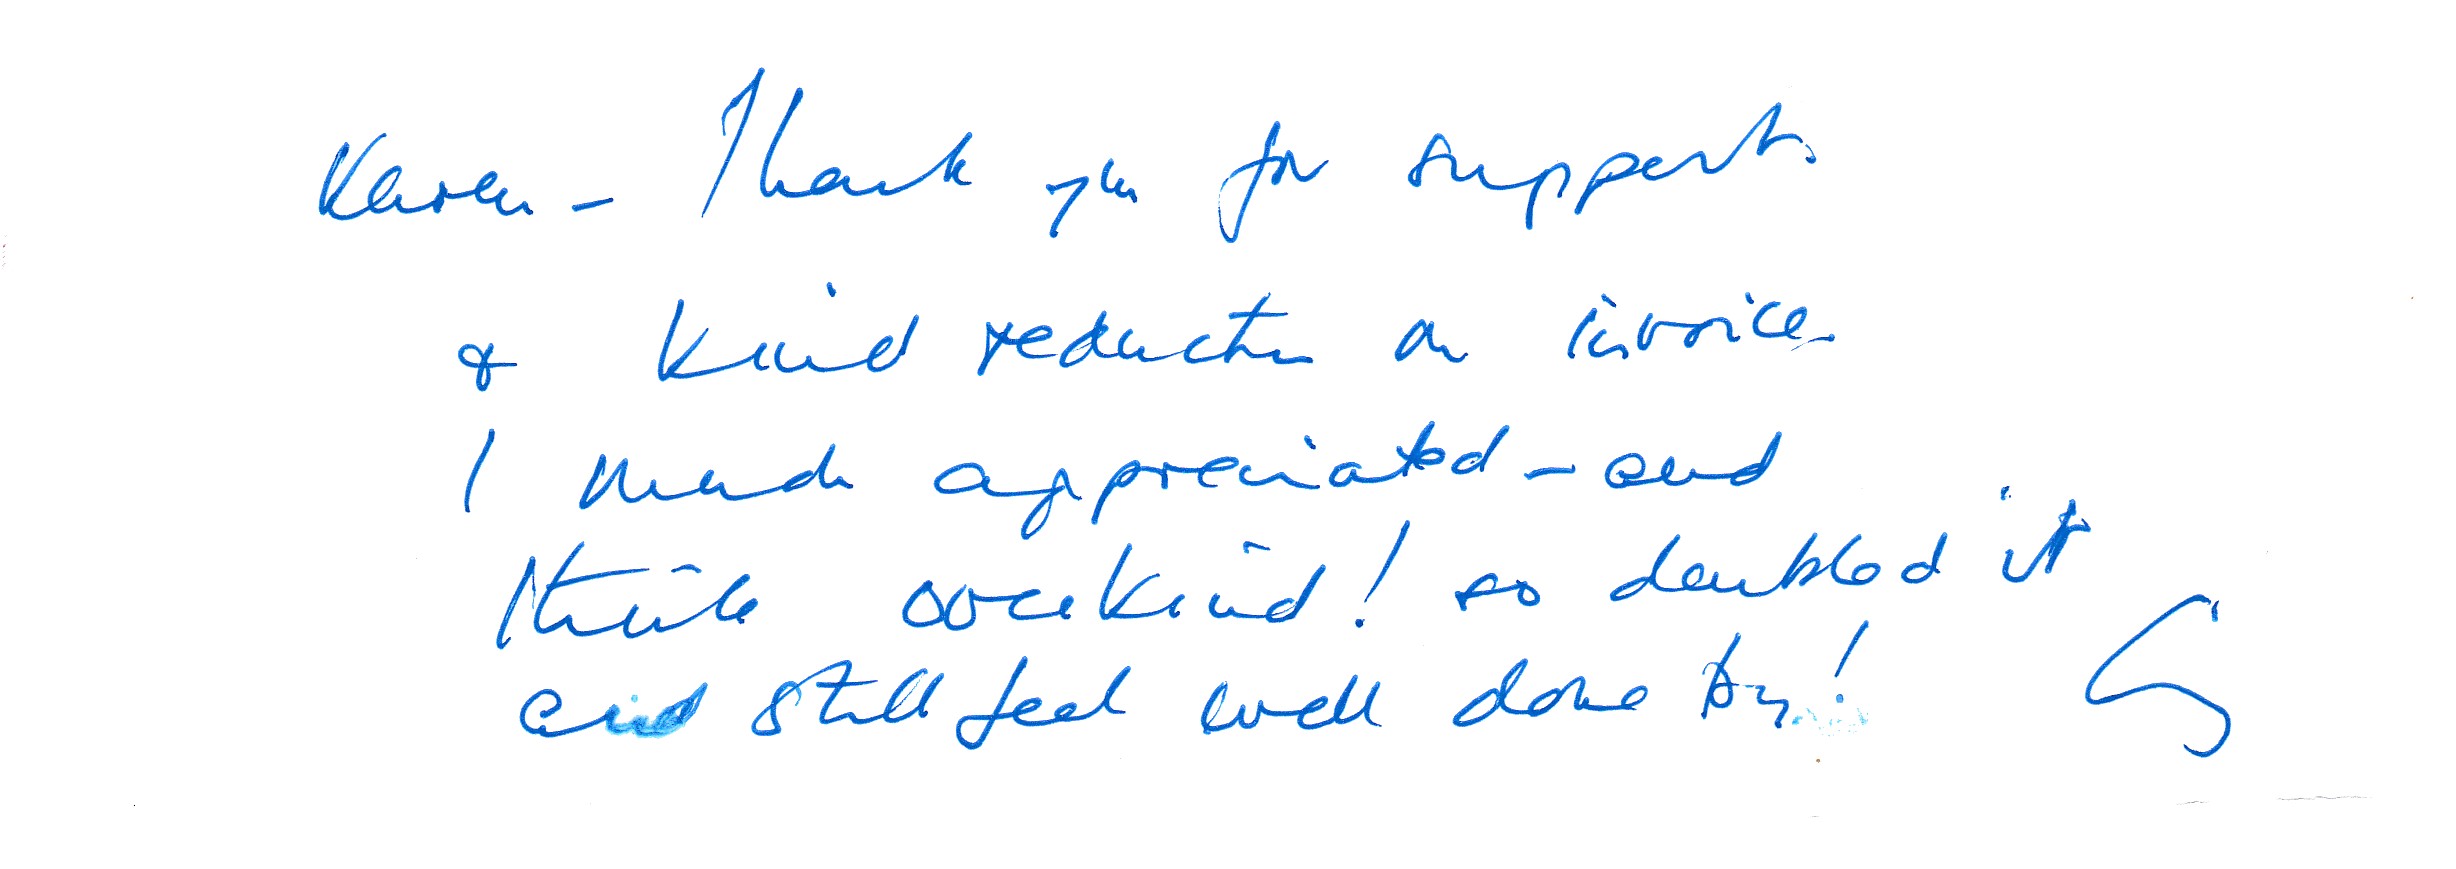 Karen - Thank you for support.
& kind reduction on invoice.
I much appreciated - and
think overkind! so doubled it
and still feel well done by!